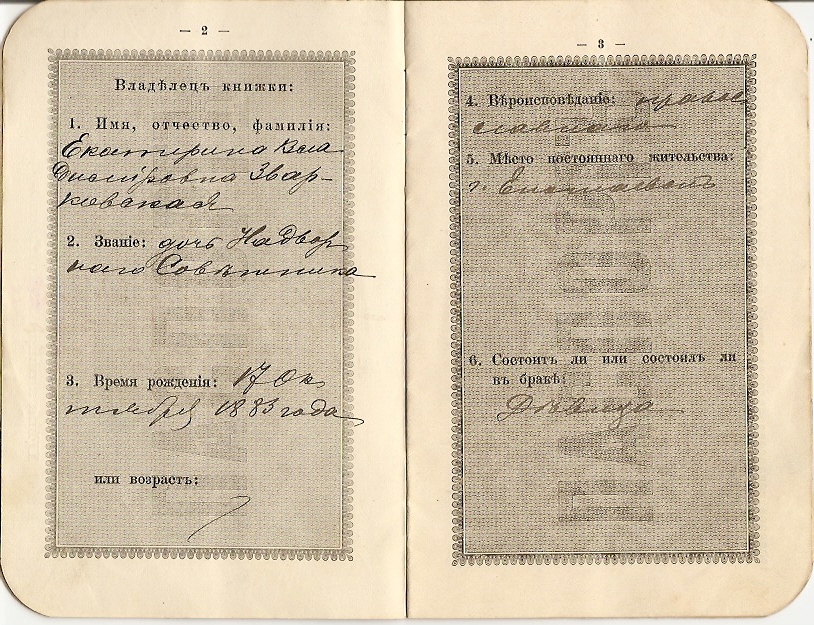 — 2 —
Владѣлецъ книжки:
1. Имя, отчество, фамилія:
Екатерина Вла
диміровна Звар-
ковская
2. Званіе: дочь Надвор
наго Совѣтника
3. Время рожденія: 17 Ок
тября 1883 года
или возрастъ:
— 3 —
4. Вѣроисповѣданіе: право
славнаго
5. Мѣсто постояннаго жительства:
г.
6. Состоитъ ли или состоялъ ли
въ бракѣ:
Дѣвица
ПАСПОРТ